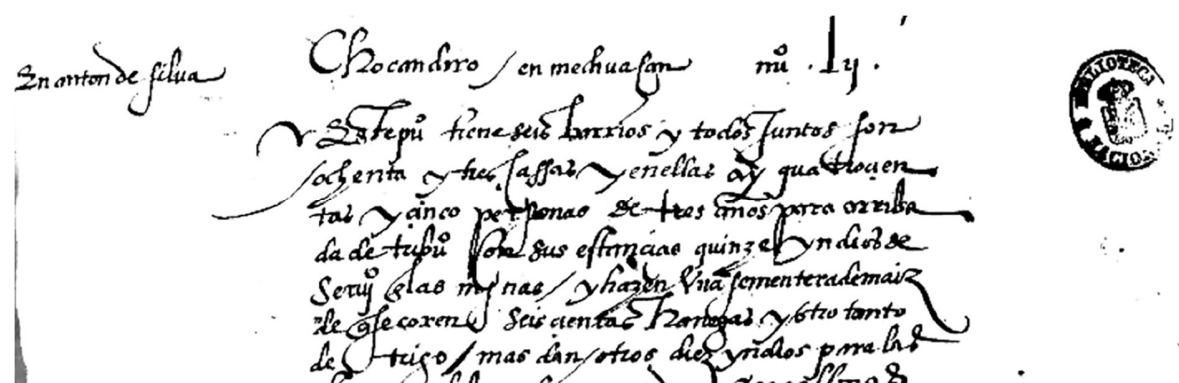 En anton de silva
Chocandiro / en mechuacan nuº . Lij .
Este puº tiene seis barrios y todos Juntos son
ochenta y tres cassas y en ellas ay quatroçien
tas y çinco personas de tres años para arriba
da de tributº sus estancias quinze yndios de
seruiº las minas / y hazen vna sementera de maiz
de q se coxen seis cientas hanegas y otro tanto
de trigo / mas dan otros diez yndios para las
BIBLIOTECA NACIONAL